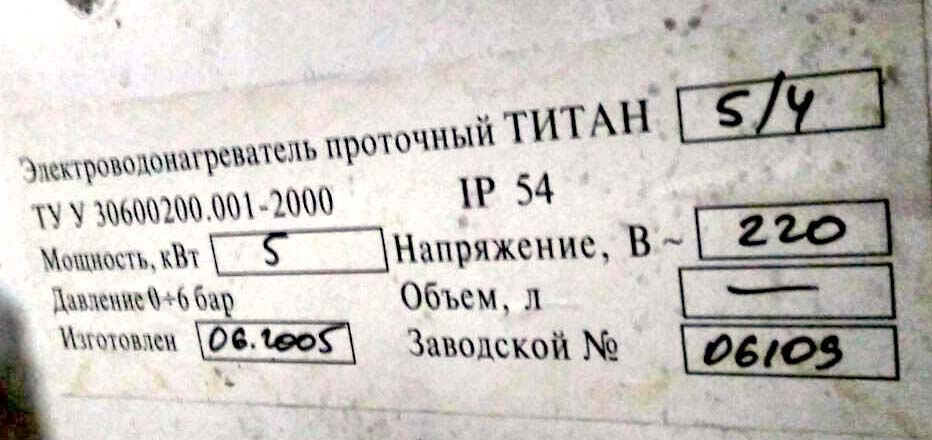 Электроводонагреватель проточный ТИТАН 5/4
ТУ У 30600200.001-2000 IP 54
Мощность, кВт 5 Напряжение, В ~ 220
Давление 0÷6 бар Объем, л —
Изготовлен 06.2005 Заводской № 06109